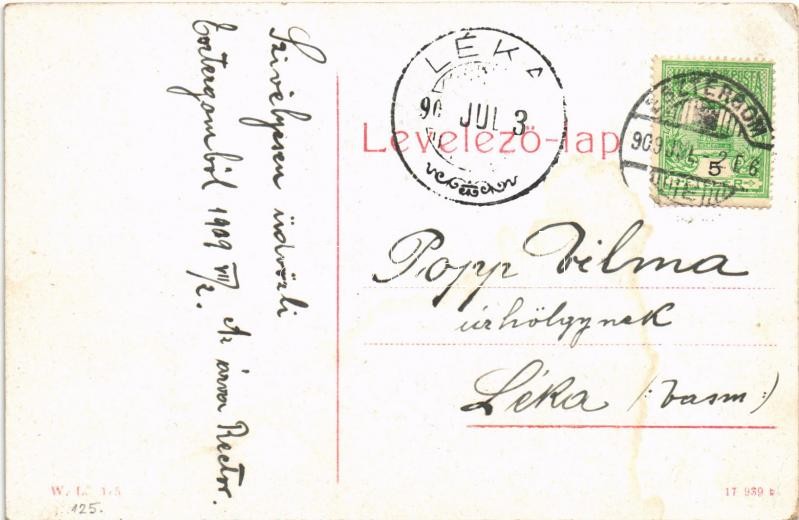 Szivélyesen üdvözli
Esztergomból 1909 VII/2. Az árva Rector.
LÉKA
90 JUL 3
Levelező-lap
ESZTERGOM
909 JUL 2
5
Popp Vilma
úrhölgynek
Léka (:Vasm:)
W. L.
125.
17 939